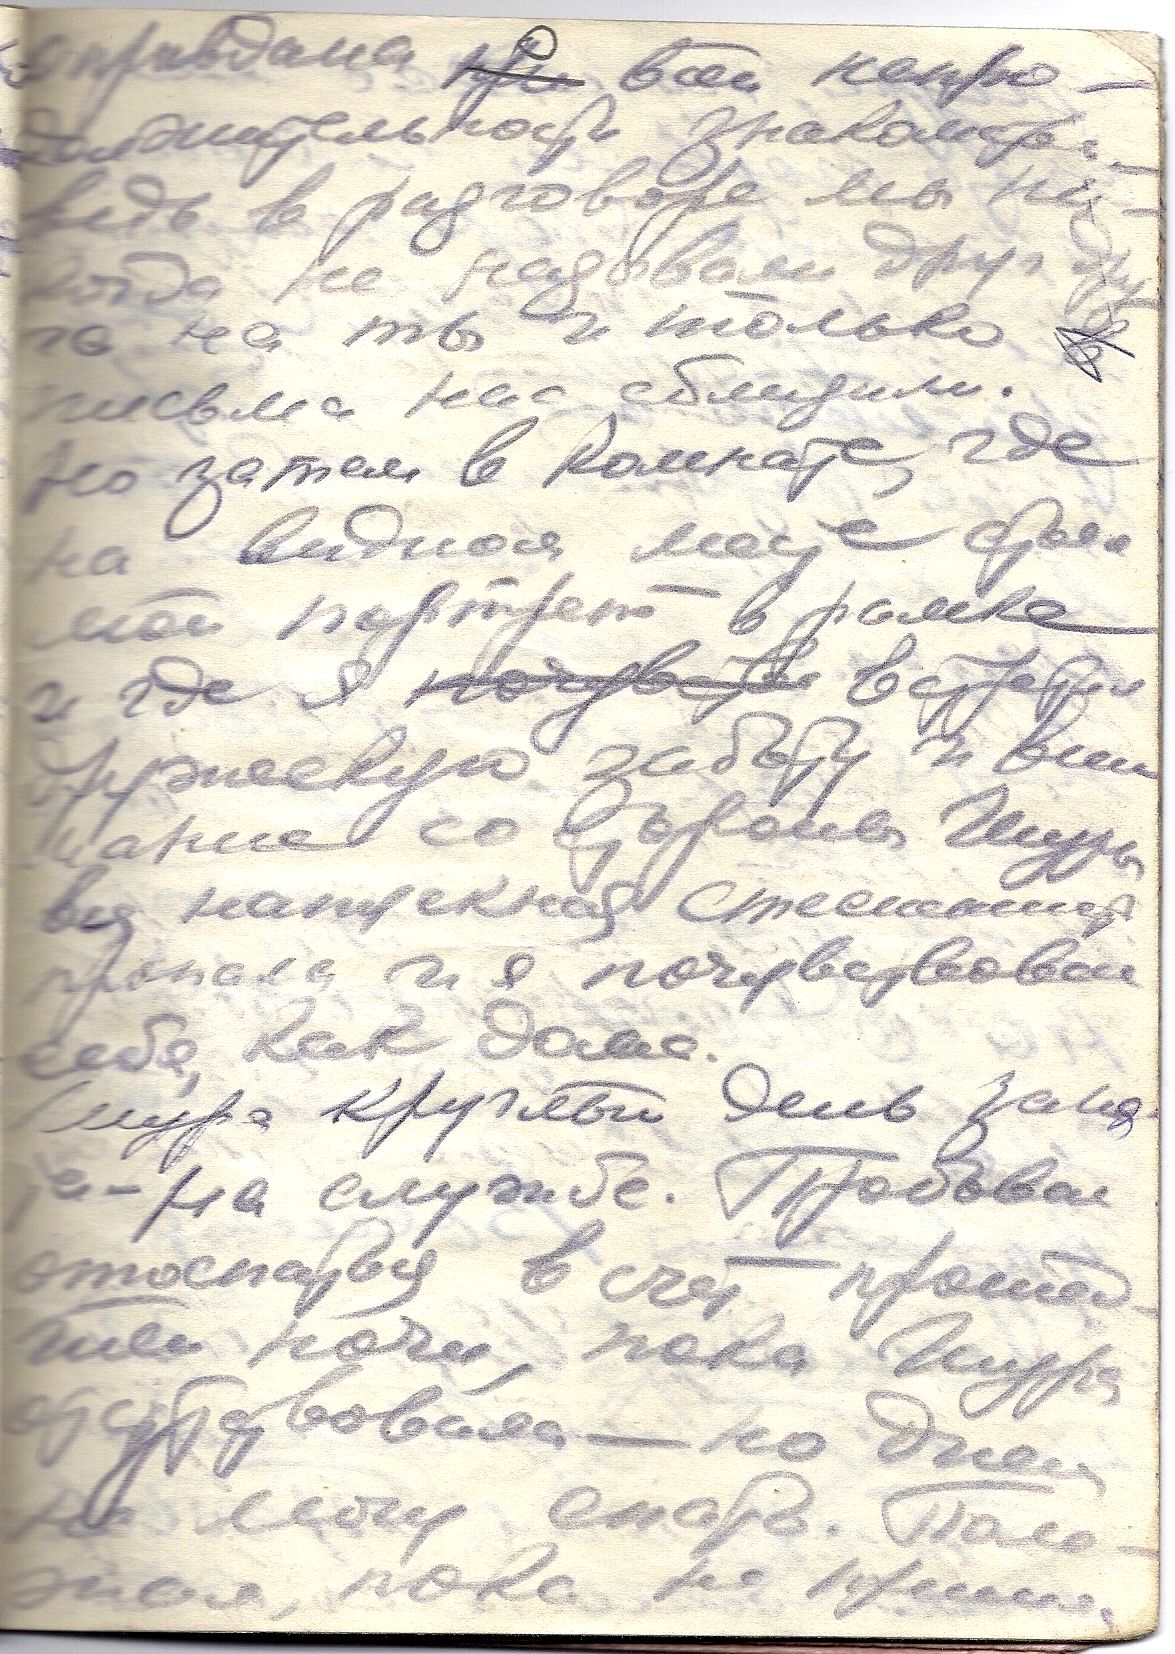 оправдана при всей непро-
должительности знакомства –
ведь в разговоре мы ни-
когда не называли друг дру
га на ты и только
письма нас сблизили.
Но затем в комнате, где
на видном месте стоял
мой портрет в рамке
и где я почувство встретил
дружескую заботу и вни
мание со стороны Шуры
вся напускная
пропала и я почувствовал
себя, как дома.
Шура круглый день заня
та – на службе. Пробовал
отоспаться в счет прошед
шей ночи, пока Шура
отсутствовала – но днем
не могу спать. Поле-
жал, пока не